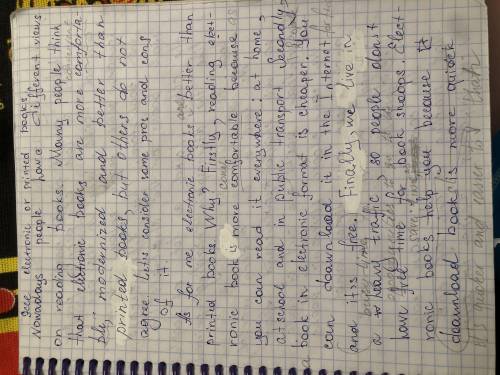 Use electronic or printed books
Nowadays people have different views
on reading books. Many people think
that electronic books are more comforta-
bly, modernized and better than
printed books, but others do not
agree. Let's consider some pros and cons
of it
As for me electronic books are better than
printed books. Why? Firstly, reading elect-
ronic book is more comfortable because
you can read it everywhere: at home,
at school and in public transport. Secondly,
a book in electronic format is cheaper. You
can download it in the Internet for
and it is free. Finally, we live in
a heavy traffic, so people don't
have free time for book shoops. Elect-
ronic books help you because it
download book is more quick
It's quicker and easier to than